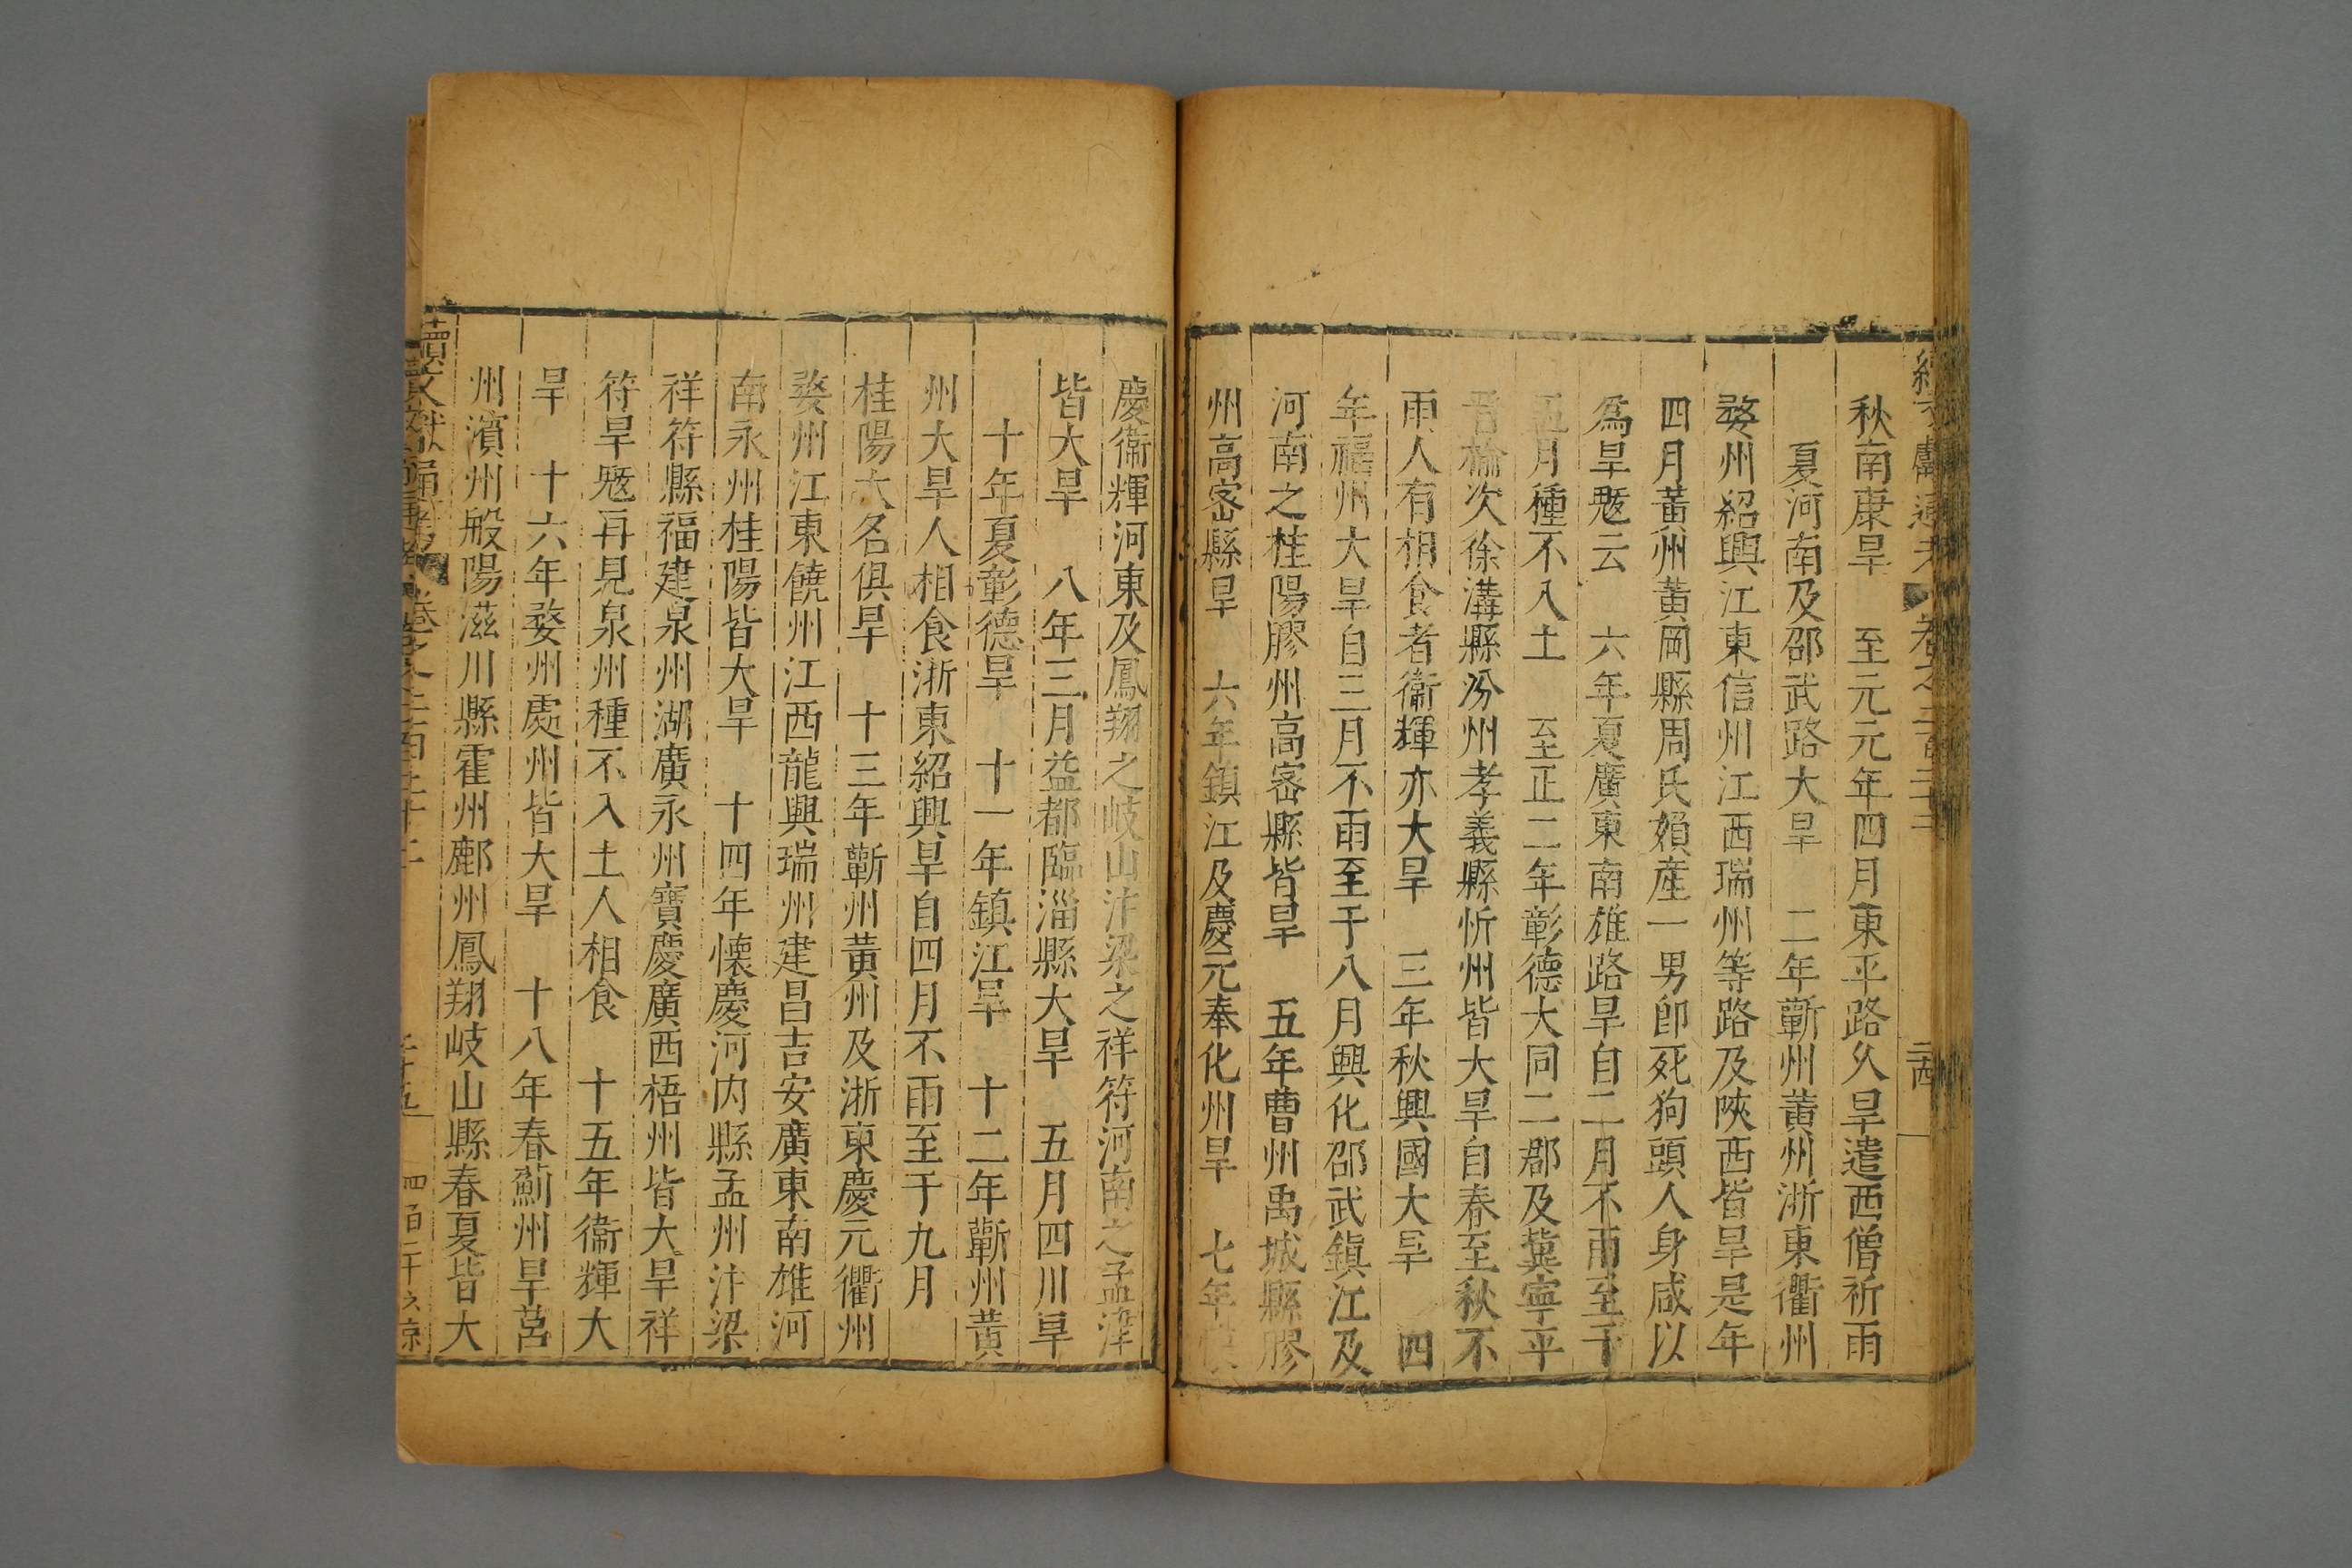 秋南康旱　至元元年四月東平路久旱遣西僧祈雨
夏河南及邵武路大旱　二年蘄州黃州浙東衢州
婺州紹興江東信州江西瑞州等路及陝西皆旱是年
四月黃州黃岡縣周氏婦產一男卽死狗頭人身咸以
爲旱魃云　六年夏廣東南雄路旱自二月不雨至于
五月種不入土　至正二年彰德大同二郡及冀寧平
晉榆次徐溝縣汾州孝義縣忻州皆大旱自春至秋不
雨人有相食者衞輝亦大旱　三年秋興國大旱　四
年福州大旱自三月不雨至于八月興化邵武鎮江及
河南之桂陽膠州高密縣皆旱　五年曹州禹城縣膠
州高密縣旱　六年鎮江及慶元奉化州旱　七年懷
慶衞輝河東及鳳翔之岐山汴梁之祥符河南之孟津
皆大旱　八年三月益都臨淄縣大旱　五月四川旱
十年夏彰德旱　十一年鎮江旱　十二年蘄州黃
州大旱人相食浙東紹興旱自四月不雨至于九月
桂陽大名俱旱　十三年蘄州黃州及浙東慶元衢州
婺州江東饒州江西龍興瑞州建昌吉安廣東南雄河
南永州桂陽皆大旱　十四年懷慶河內縣孟州汴梁
祥符縣福建泉州湖廣永州寶慶廣西梧州皆大旱祥
符旱魃再見泉州種不入土人相食　十五年衞輝大
旱　十六年婺州處州皆大旱　十八年春薊州旱莒
州濱州般陽滋川縣霍州鄜州鳳翔岐山縣春夏皆大
續文獻通考　卷之二百二十二　二十五　四百二十六